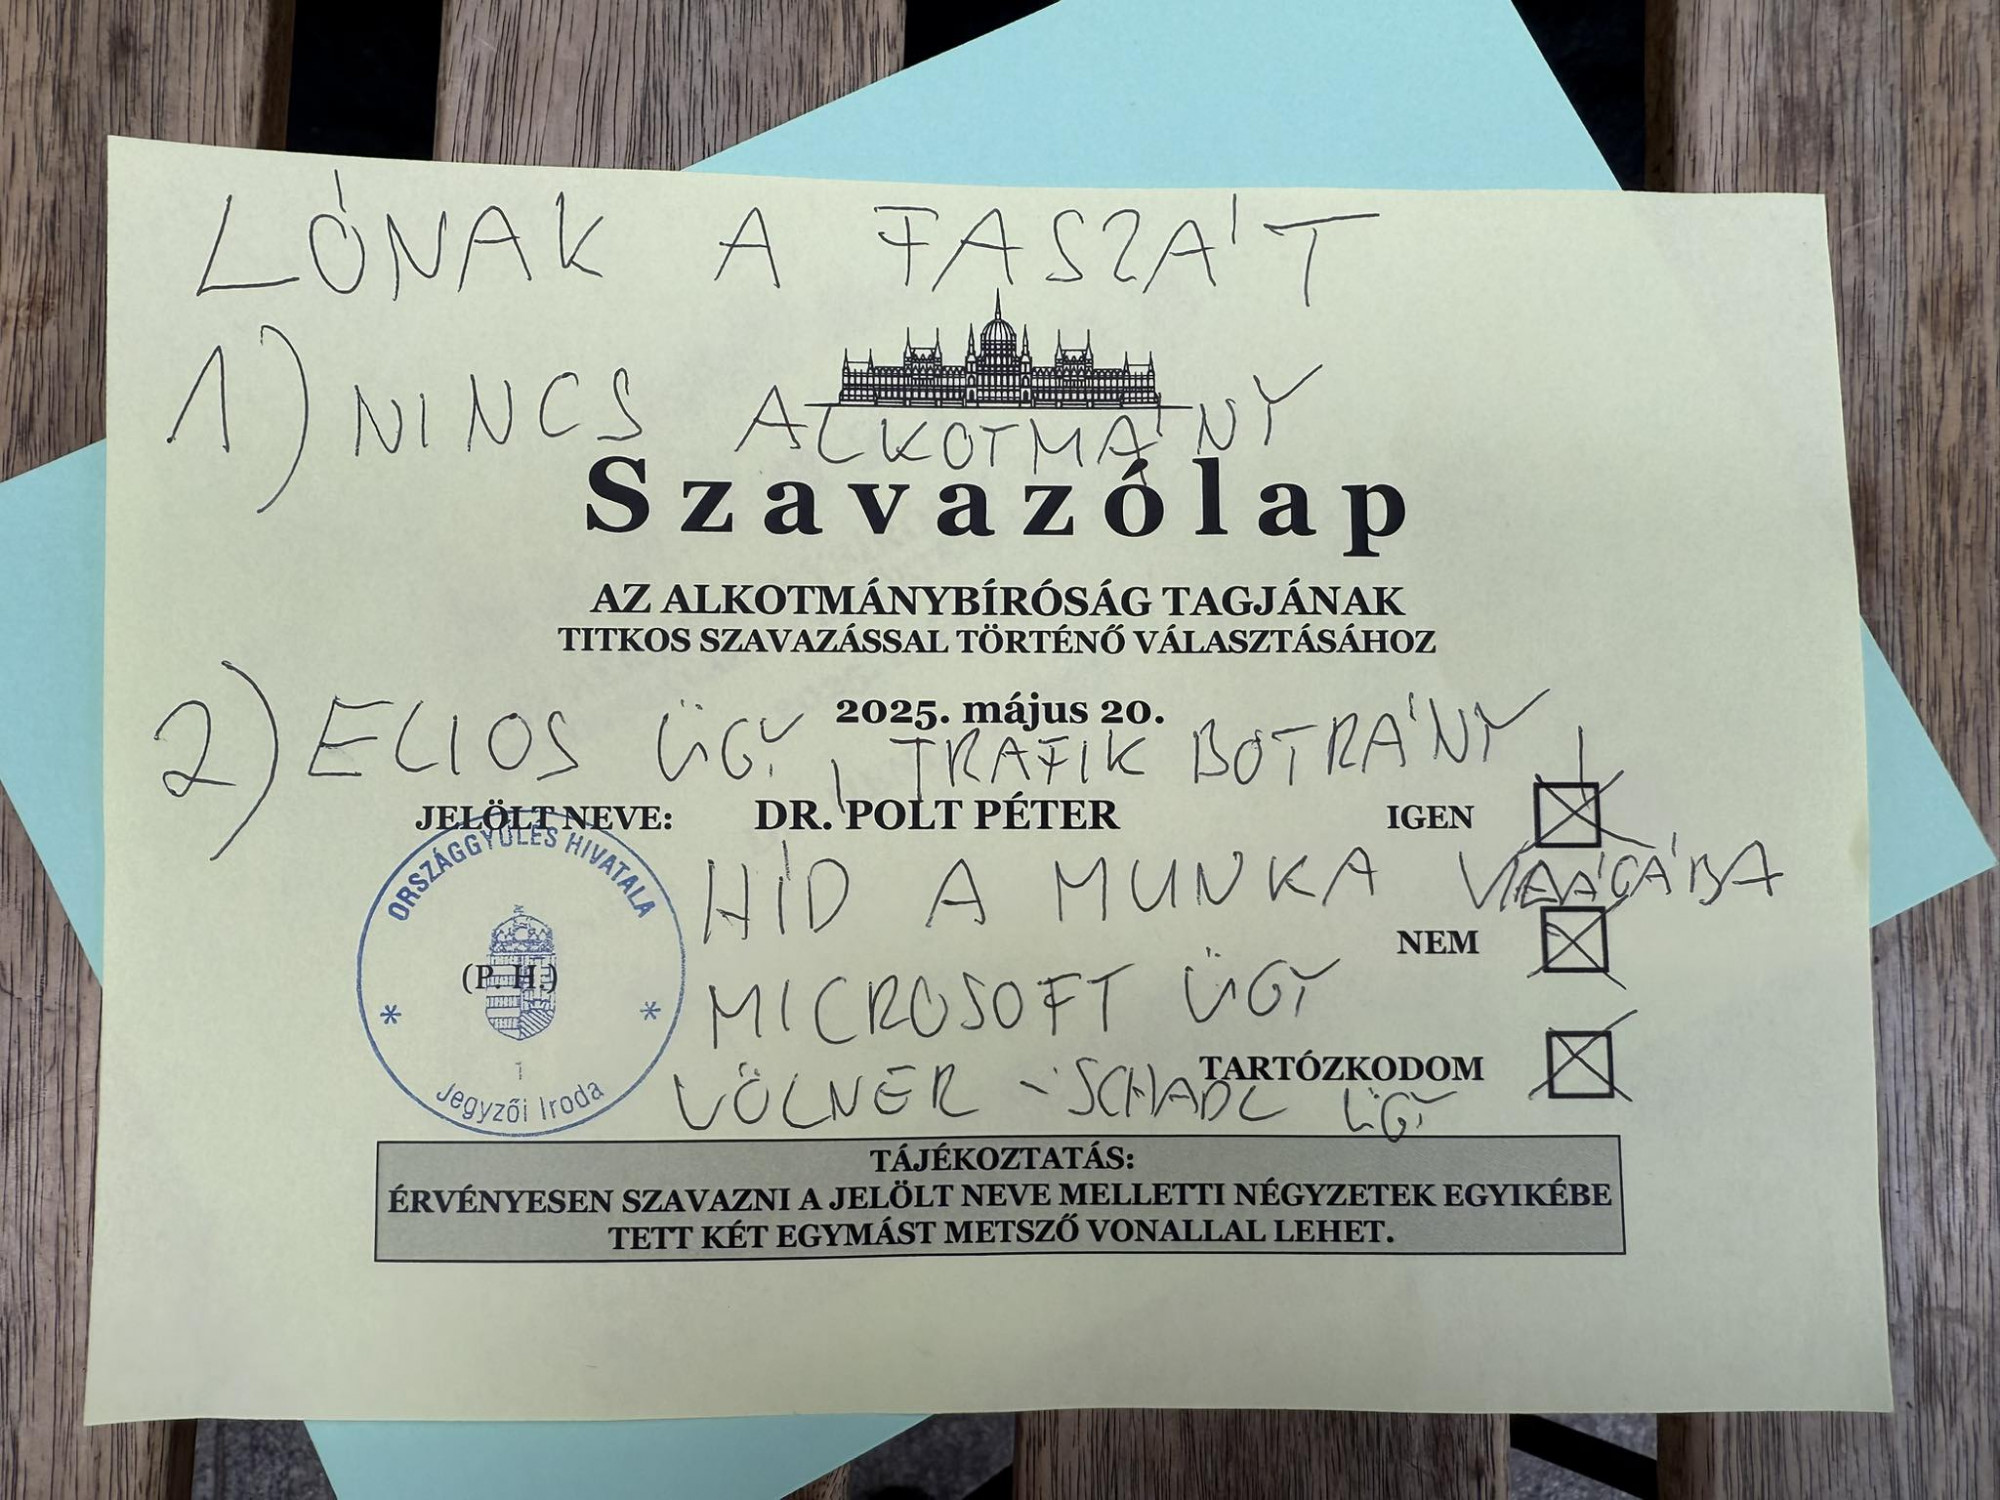 LÓNAK A FASZÁT
1) NINCS ALKOTMÁNY
Szavazólap
AZ ALKOTMÁNYBÍRÓSÁG TAGJÁNAK
TITKOS SZAVAZÁSSAL TÖRTÉNŐ VÁLASZTÁSÁHOZ
2025. május 20.
2) ELIOS ÜGY, TRAFIK BOTRÁNY
JELÖLT NEVE: DR. POLT PÉTER IGEN
HÍD A MUNKA VILÁGÁBA
NEM
MICROSOFT ÜGY
TARTÓZKODOM
VÖLNER - SCHADL ÜGY
ORSZÁGGYŰLÉS HIVATALA
(P. H.)
* *
1
Jegyzői Iroda
TÁJÉKOZTATÁS:
ÉRVÉNYESEN SZAVAZNI A JELÖLT NEVE MELLETTI NÉGYZETEK EGYIKÉBE
TETT KÉT EGYMÁST METSZŐ VONALLAL LEHET.